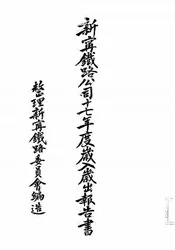 新寗鐵路公司十七年度歲入歲出報告書
整理新寗鐵路委員會編造